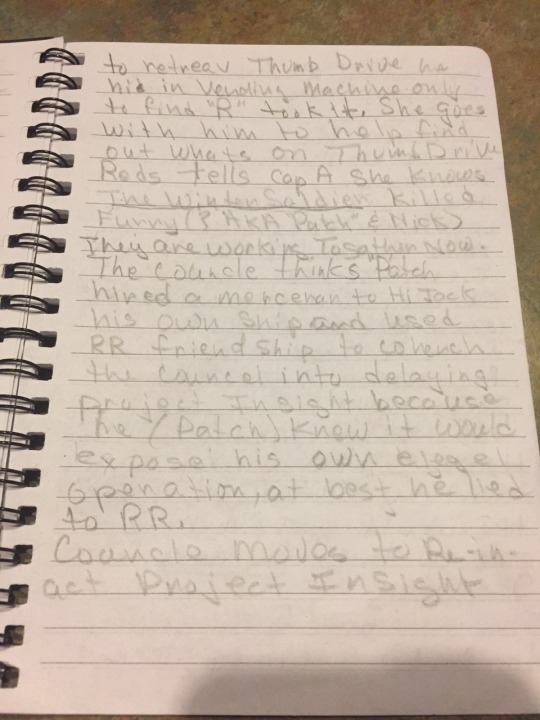 to retreav Thumb Drive he
hid in Vending Machine only
to find "R" took it. She goes
with him to help find
out whats on Thumb Drive
Reds tells Cap A She Knows
The Winter Soldier killed
Furry (? AKA "Patch" & Nick)
They are working Togather Now.
The councle thinks "Patch
hired a mercenan to Hi Jack
his own Ship and used
RR friend ship to cohench
the councel into delaying
project Insight because
he (Patch) Knew it would
expose his own elegel
operation, at best he lied
to RR.
Councle moves to Re-in-
act Project InSight